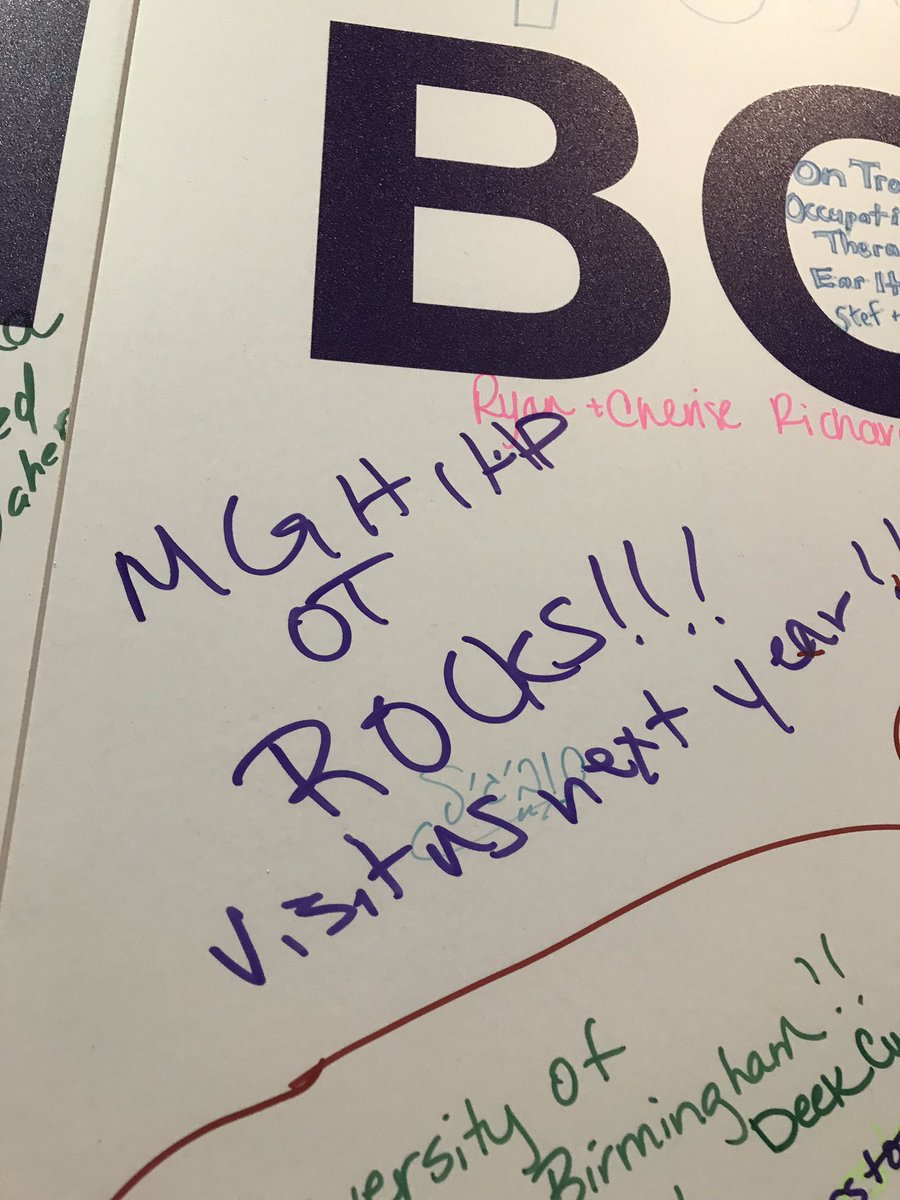 BO
On Tro
Occupati
Thera
Ear H
Stef +
Ryan + Cherise Richar
ed
MGH IHP
OT
ROCKS!!!
visit us next year!!
ersity of
Birmingham!!
Deek Cu